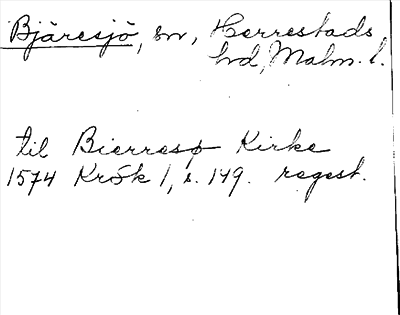 Bjäresjö, sn, Herrestads
hd, Malm. l.
til Bierresø Kirke
1574 KrSk 1, s. 149. regest.